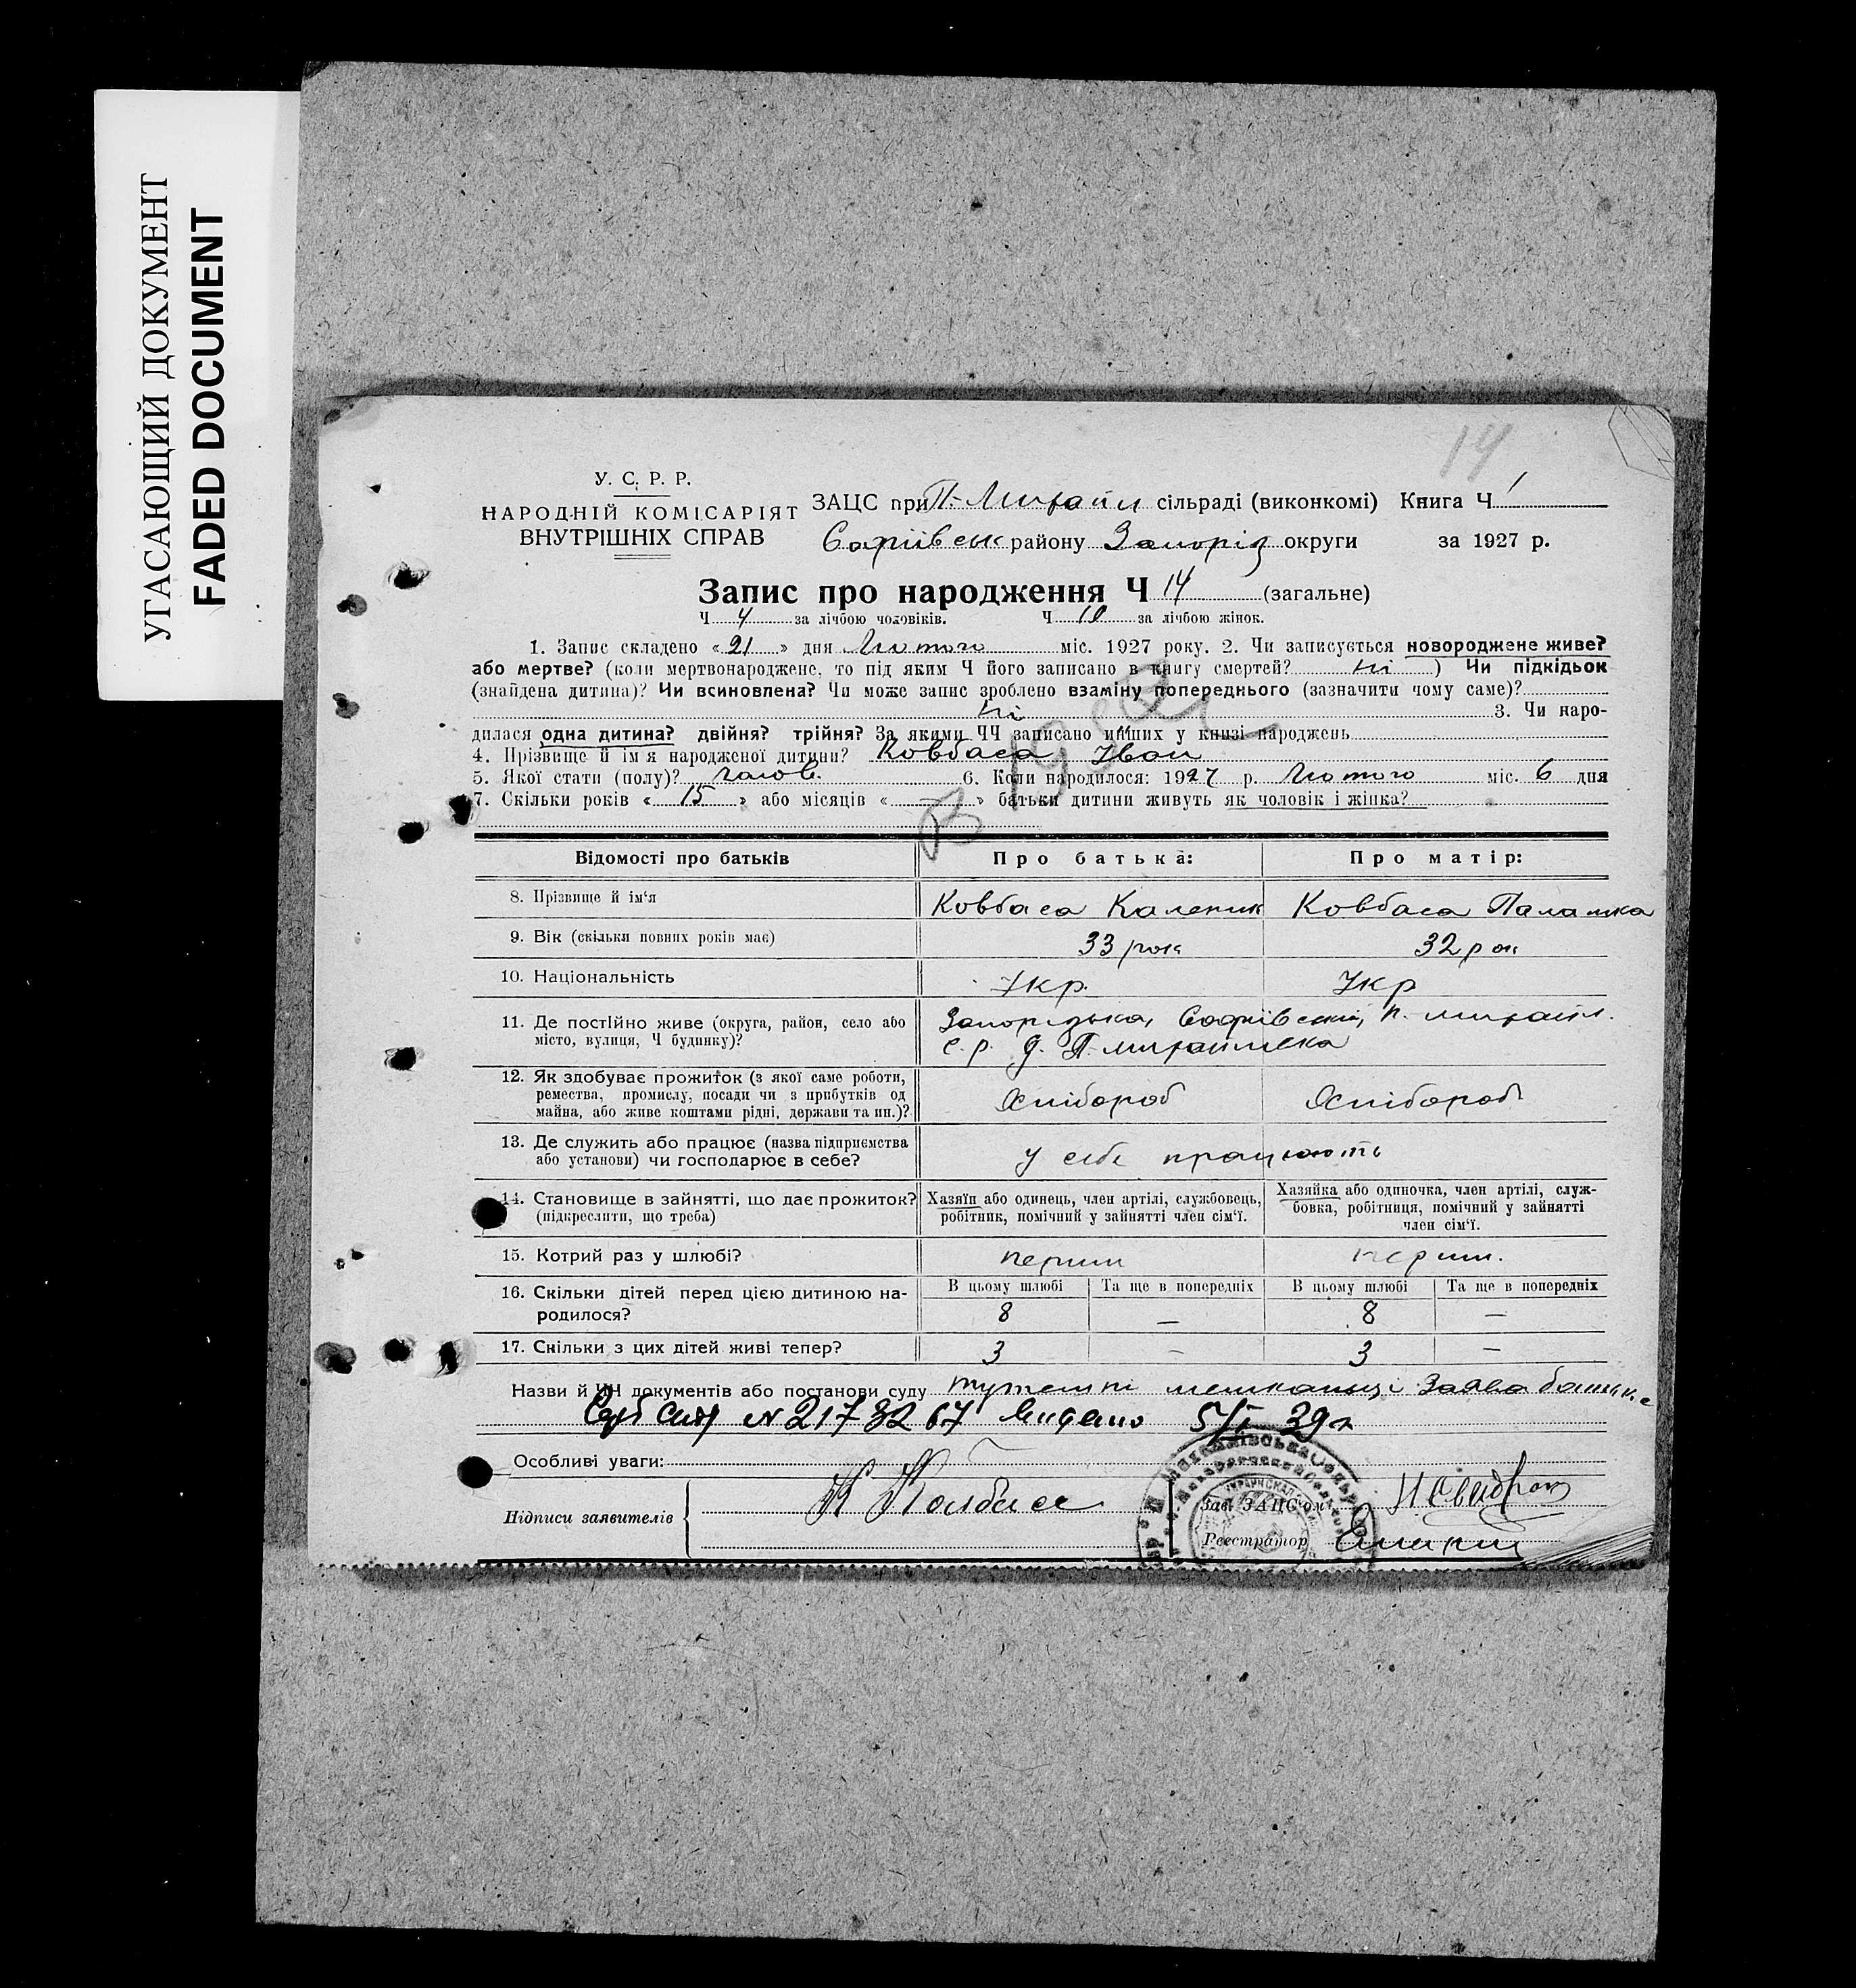 УГАСАЮЩИЙ ДОКУМЕНТ
FADED DOCUMENT
14
У. С. Р. Р.
НАРОДНІЙ КОМІСАРІЯТ
ВНУТРІШНІХ СПРАВ
ЗАЦС при П-Михайл сільраді (виконкомі) Книга Ч 1
Софіївськ району Запоріз округи за 1927 р.
Запис про народження Ч 14 (загальне)
Ч 4 за лічбою чоловіків. Ч 10 за лічбою жінок.
1. Запис складено « 21 » дня Лютого міс. 1927 року. 2. Чи записується новороджене живе?
або мертве? (коли мертвонароджене, то під яким Ч його записано в книгу смертей? ні ) Чи підкідьок
(знайдена дитина)? Чи всиновлена? Чи може запис зроблено взаміну попереднього (зазначити чому саме)?
ні 3. Чи наро-
дилася одна дитина? двійня? трійня? За якими ЧЧ записано инших у книзі народжень
4. Прізвище й ім'я народженої дитини? Ковбаса Іван
5. Якої стати (полу)? чолов. 6. Коли народилося: 1927 р. Лютого міс. 6 дня
7. Скільки років « 15 » або місяців « — » батьки дитини живуть як чоловік і жінка?
Відомості про батьків Про батька: Про матір:
8. Прізвище й ім'я Ковбаса Каленик Ковбаса Палажка
9. Вік (скільки повних років має) 33 рок 32 рок
10. Національність Укр. Укр
11. Де постійно живе (округа, район, село або
місто, вулиця, Ч будинку)?
Запорізька, Софіївський, П.-Михайл.
с.р. д. П-Михайлівка
12. Як здобуває прожиток (з якої саме роботи,
ремества, промислу, посади чи з прибутків од
майна, або живе коштами рідні, держави та ин.)?
Хлібороб Хлібороб
13. Де служить або працює (назва підприємства
або установи) чи господарює в себе?
у себе працюють
14. Становище в зайнятті, що дає прожиток?
(підкреслити, що треба)
Хазяїн або одинець, член артілі, службовець,
робітник, помічний у зайнятті член сім'ї.
Хазяйка або одиночка, член артілі, служ-
бовка, робітниця, помічний у зайнятті
член сім'ї.
15. Котрий раз у шлюбі? перший перший.
16. Скільки дітей перед цією дитиною на-
родилося?
В цьому шлюбі Та ще в попередніх В цьому шлюбі Та ще в попередніх
8 — 8 —
17. Скільки з цих дітей живі тепер? 3 — 3 —
Назви й ЧЧ документів або постанови суду тутешні мешканці Заява батька
N 217 32 67 Видано 5/I 39 г
Особливі уваги:
Підписи заявителів
К Колбаса
Зав. ЗАЦС'ом
Реєстратор